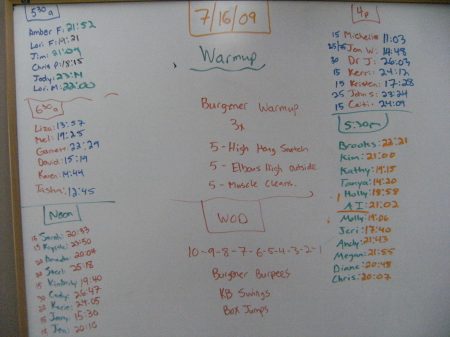 5:30a
Amber F: 21:52
Lori F: 19:21
Jim: 21:09
Chris P: 18:15
Jody: 23:14
Lori M: 22:00
6:30a
Liza: 13:57
Mel: 19:25
22:29
David: 15:19
Karen: 14:44
Tasha: 12:45
Noon
15 Sarah: 20:33
23:50
20:54
25:18
15 Kimberly 19:40
20 Cody: 26:47
24:05
15 Jenny: 15:30
15 Jen: 20:10
7/16/09
Warmup
Burgener Warmup
3x
5 - High Hang Snatch
5 - Elbows High outside
5 - Muscle Cleans
WOD
10-9-8-7-6-5-4-3-2-1
Burgener Burpees
KB Swings
Box Jumps
4p
15 Michelle 11:03
25/35 Jon W: 14:48
30 Dr J: 26:03
15 Kerri: 24:12
15 Kristen: 17:28
25 John S: 23:24
15 Caiti: 24:09
5:30pm
Brooks: 22:21
Kim: 21:00
Kathy: 19:15
Tanya: 14:20
Holly: 18:58
A.I.: 21:02
Molly: 19:06
Jeri: 17:40
Andy: 21:43
Megan: 21:55
Diane: 20:48
Chris: 20:07